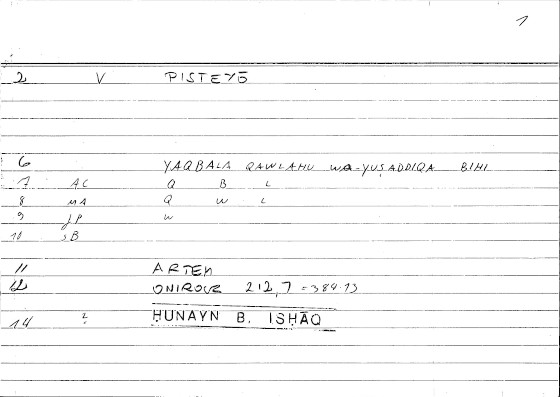 1
2 V PISTEYŌ
6 YAQBALA QAWLAHU WA-YUṢADDIQA BIHI
7 AC Q B L
8 MA Q W L
9 JP W
10 SB
11 ARTEM
12 ONIROCR 212,7 = 384.13
14 2 ḤUNAYN B. ISḤĀQ